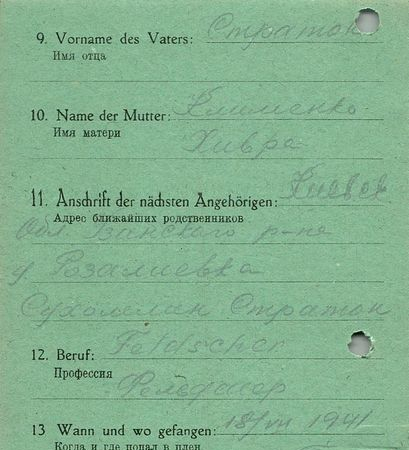 9. Vorname des Vaters: Стратон
Имя отца
10. Name der Mutter: Клименко
Имя матери
Хивря
11. Anschrift der nächsten Angehörigen: Киевск
Адрес ближайших родственников
Обл. р-на
д Розалиевка
Сухомлин Стратон
12. Beruf: Feldscher
Профессия
Фельдшер
13 Wann und wo gefangen: 18/VII 1941
Когда и где попал в плен